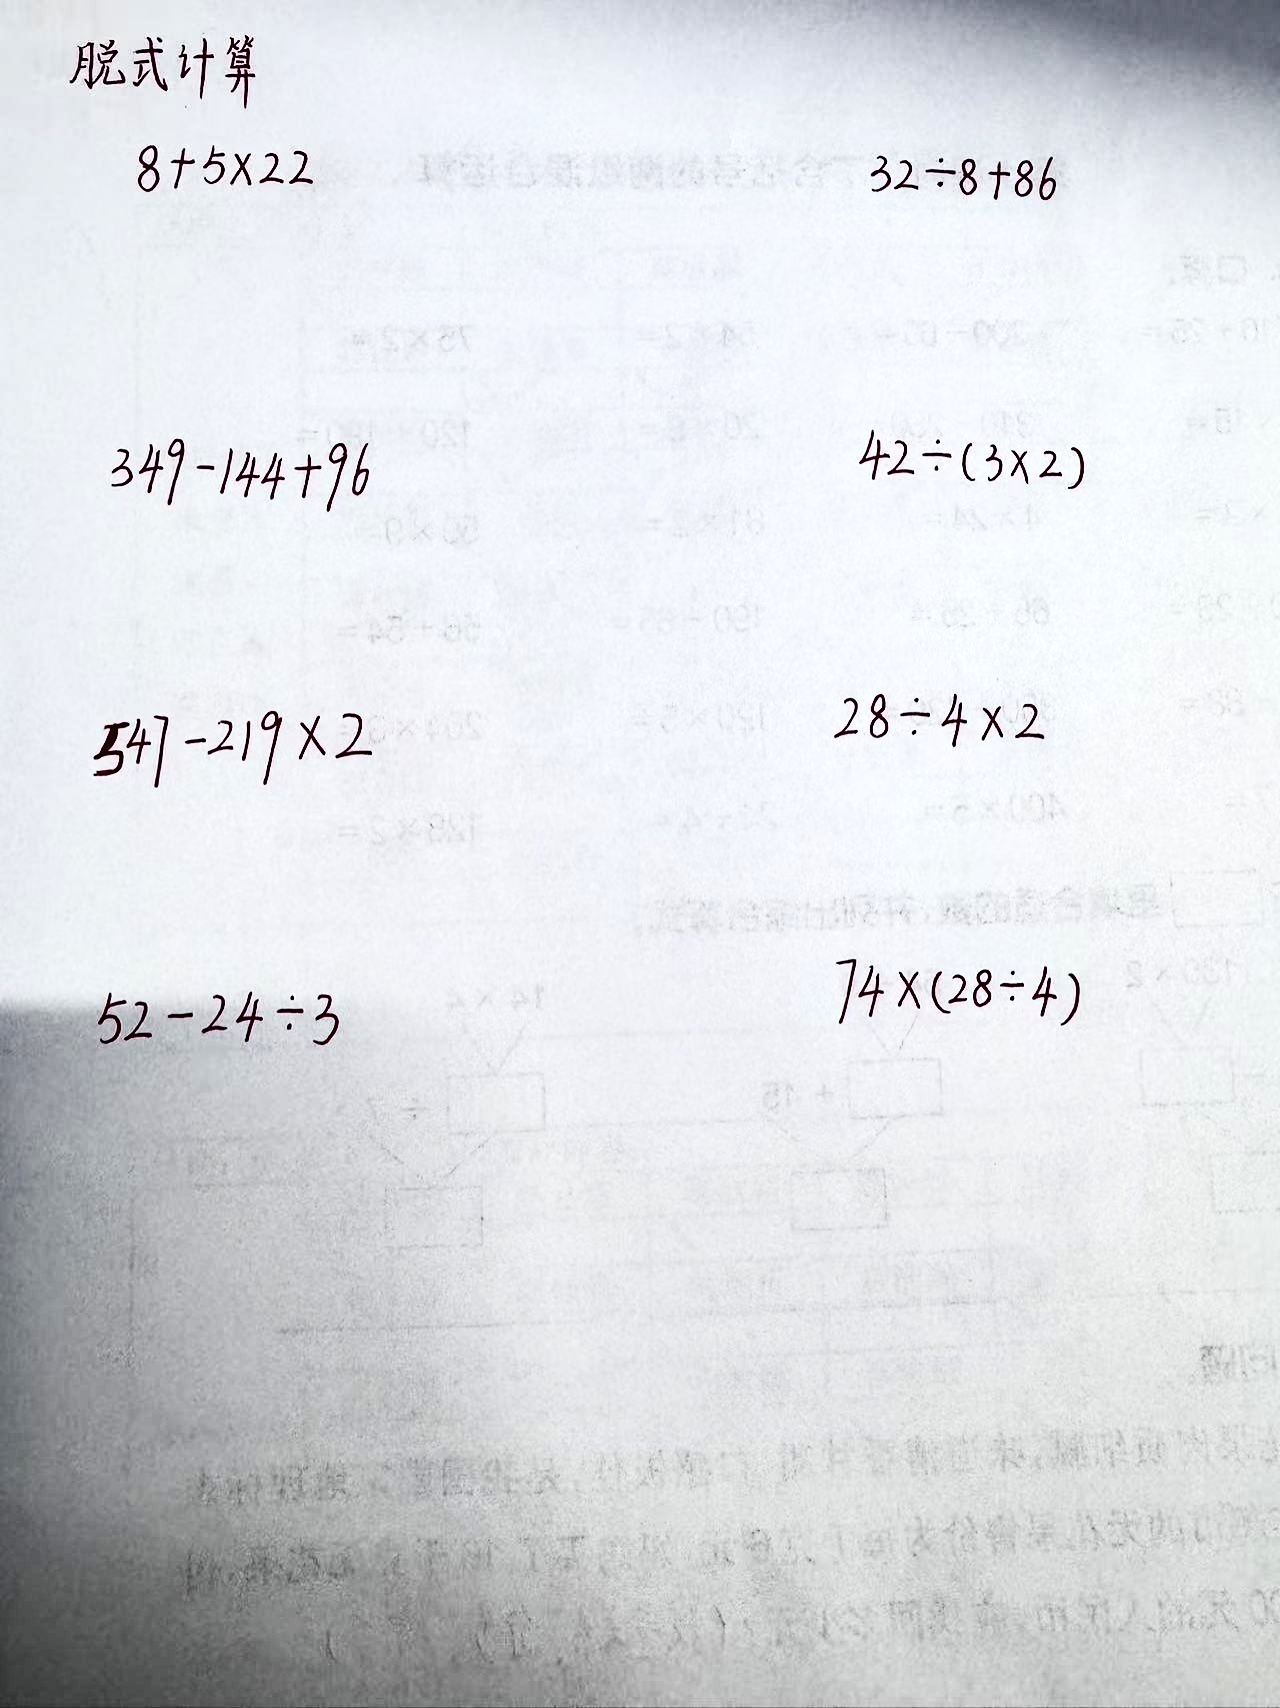 脱式计算
8+5×22 32÷8+86
349-144+96 42÷(3×2)
547-219×2 28÷4×2
52-24÷3 74×(28÷4)